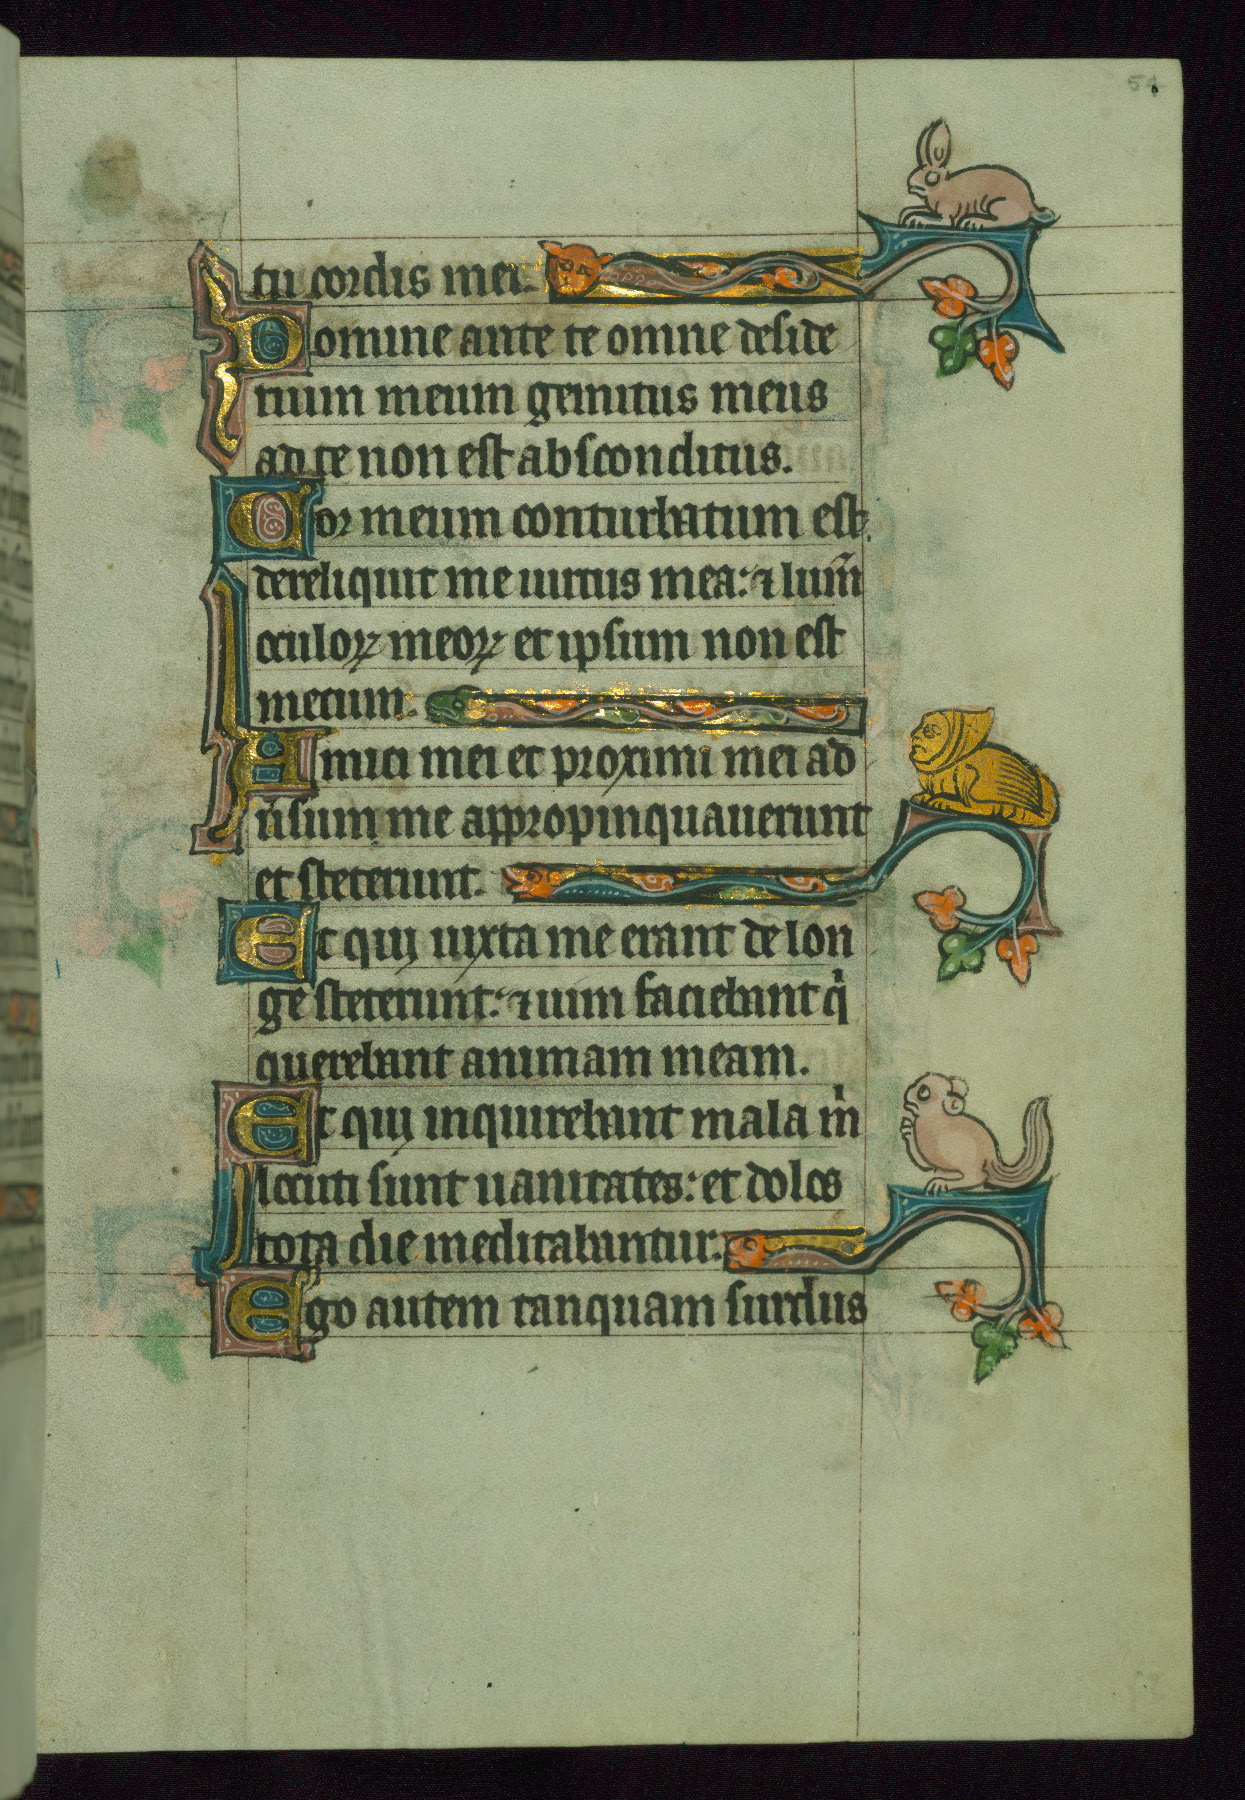 54
tu cordis mei.
Domine ante te omne deside
rium meum gemitus meus
ad te non est absconditus.
Cor meum conturbatum est.
dereliquit me uirtus mea: ⁊ lum̄
oculoꝝ meoꝝ et ipsum non est
mecum.
Amici mei et proximi mei ad
ūsum me appropinquauerunt
et steterunt.
Et qui iuxta me erant de lon
ge steterunt: ⁊ uim faciebant q̇
querebant animam meam.
Et qui inquirebant mala ṁ
locuti sunt uanitates: et dolos
tota die meditabantur.
Ego autem tanquam surdus